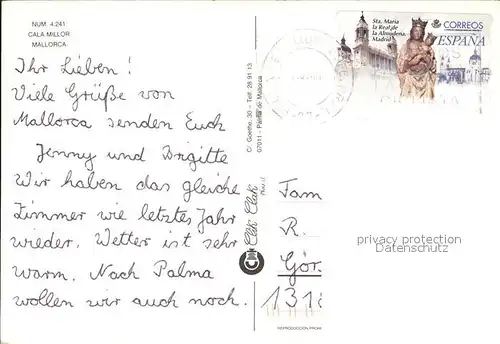 NUM. 4.241
CALA MILLOR
MALLORCA
Ihr Lieben!
Viele Grüße von
Mallorca senden Euch
Jenny und Brigitte
Wir haben das gleiche
Zimmer wie letztes Jahr
wieder. Wetter ist sehr
warm. Nach Palma
wollen wir auch noch.
C/ Goethe, 30 - Telf. 28 91 13
07011 - Palma de Mallorca
Clik Clak
REPRODUCCION PROHI
Sta. María
la Real de
la Almudena.
Madrid
CORREOS
ESPAÑA
Fam
R.
Gör.
131
privacy protection
Datenschutz